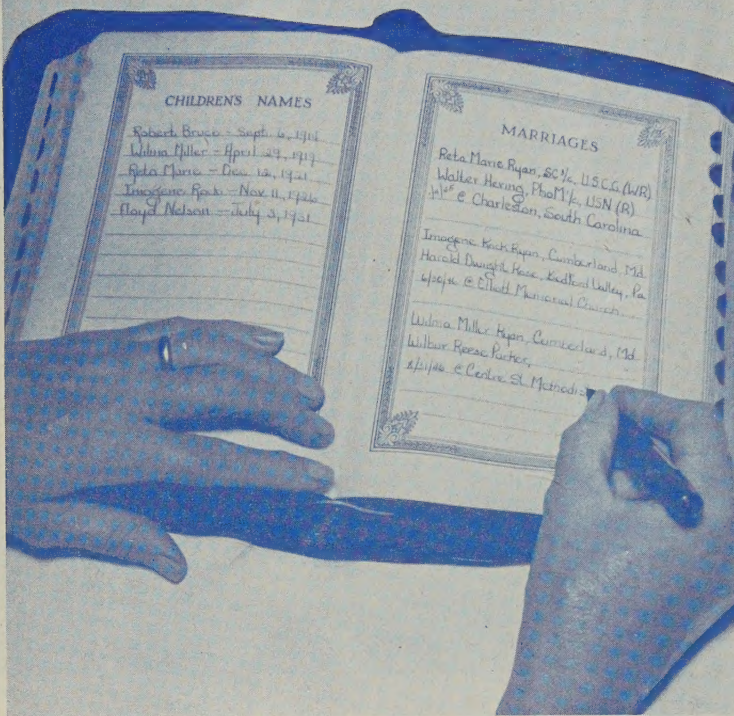 CHILDREN'S NAMES
Robert Bruce - Sept. 6, 
Wilma Miller - April 29, 1919
Reta Marie - Dec 12, 1921
Imogene Rock - Nov 11, 1926
Floyd Nelson - July 3, 1931
MARRIAGES
Reta Marie Ryan, SC ⅟c, U.S.C.G. (WR)
Walter Hering, PhoM ⅟c, USN (R)
@ Charleston, South Carolina
Imogene Rock Ryan, Cumberland, Md.
Harold Dwight Rose, Bedford Valley, Pa
@ Elliott Memorial Church
Wilma Miller Ryan, Cumberland, Md.
Wilbur Reese Parker,
@ Centre St. Methodis